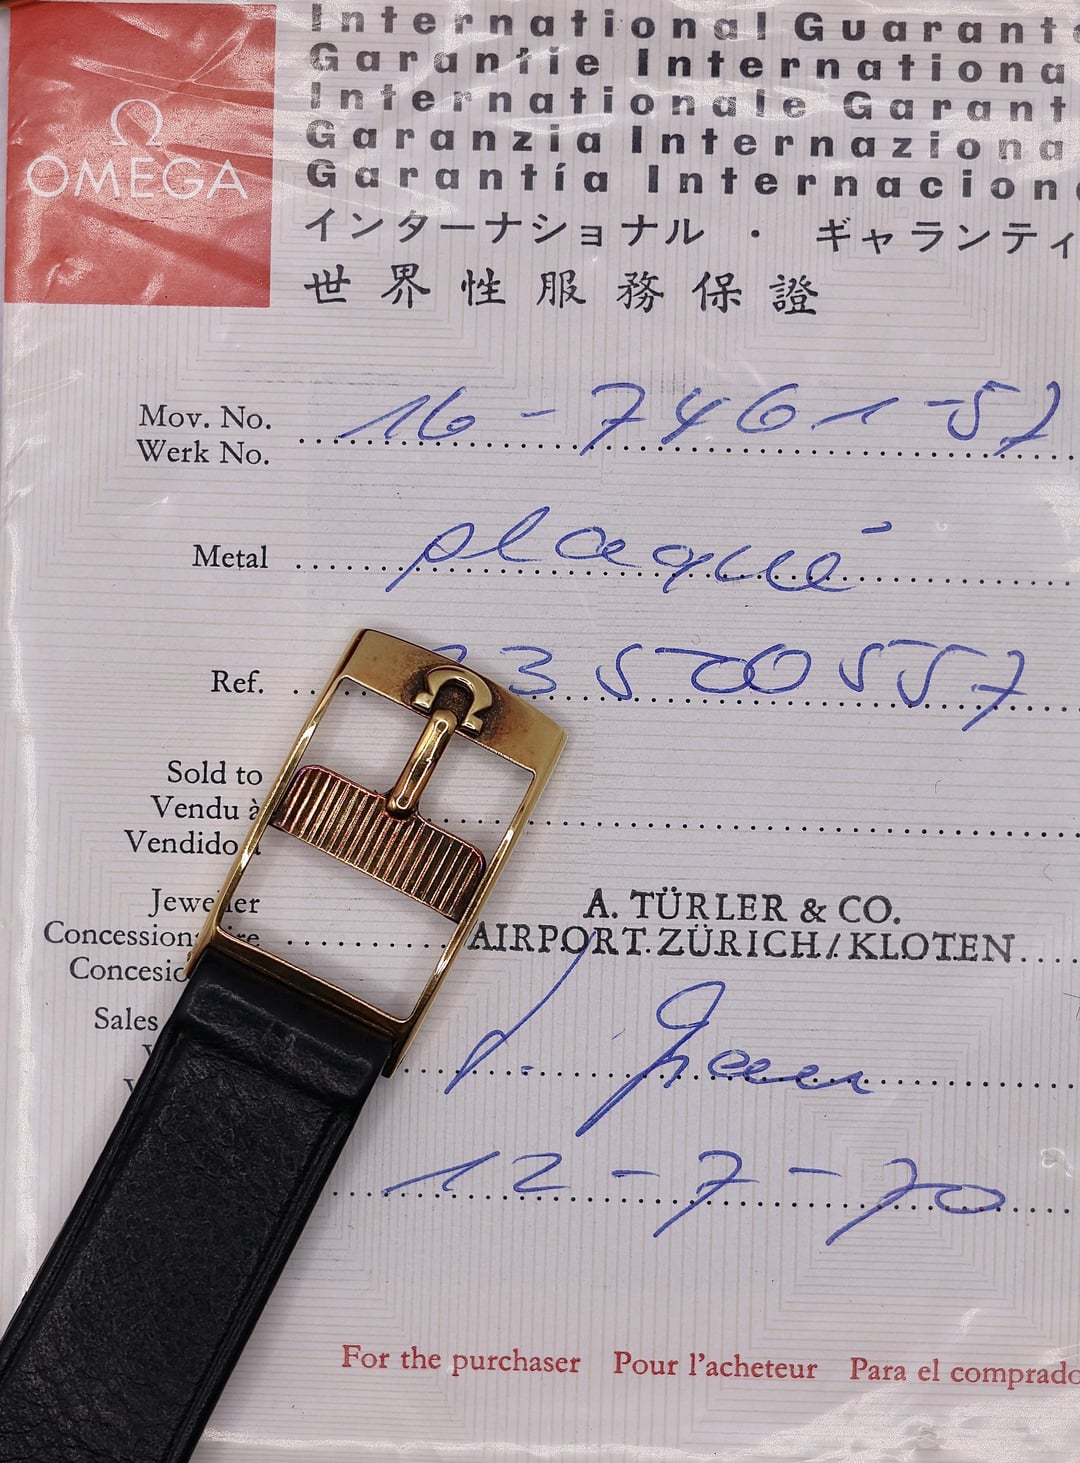 Ω
OMEGA
International Guarant
Garantie Internationa
Internationale Garant
Garanzia Internaziona
Garantía Internacion
インターナショナル・ギャランティ
世界性服務保證
Mov. No. 16-7461-57
Werk No.
Metal plaqué
Ref. 3500557
Sold to
Vendu à
Vendido
Jeweller A. TÜRLER & CO.
Concessionnaire AIRPORT ZÜRICH/KLOTEN
Concesio
Sales
12-7-70
For the purchaser Pour l'acheteur Para el comprado